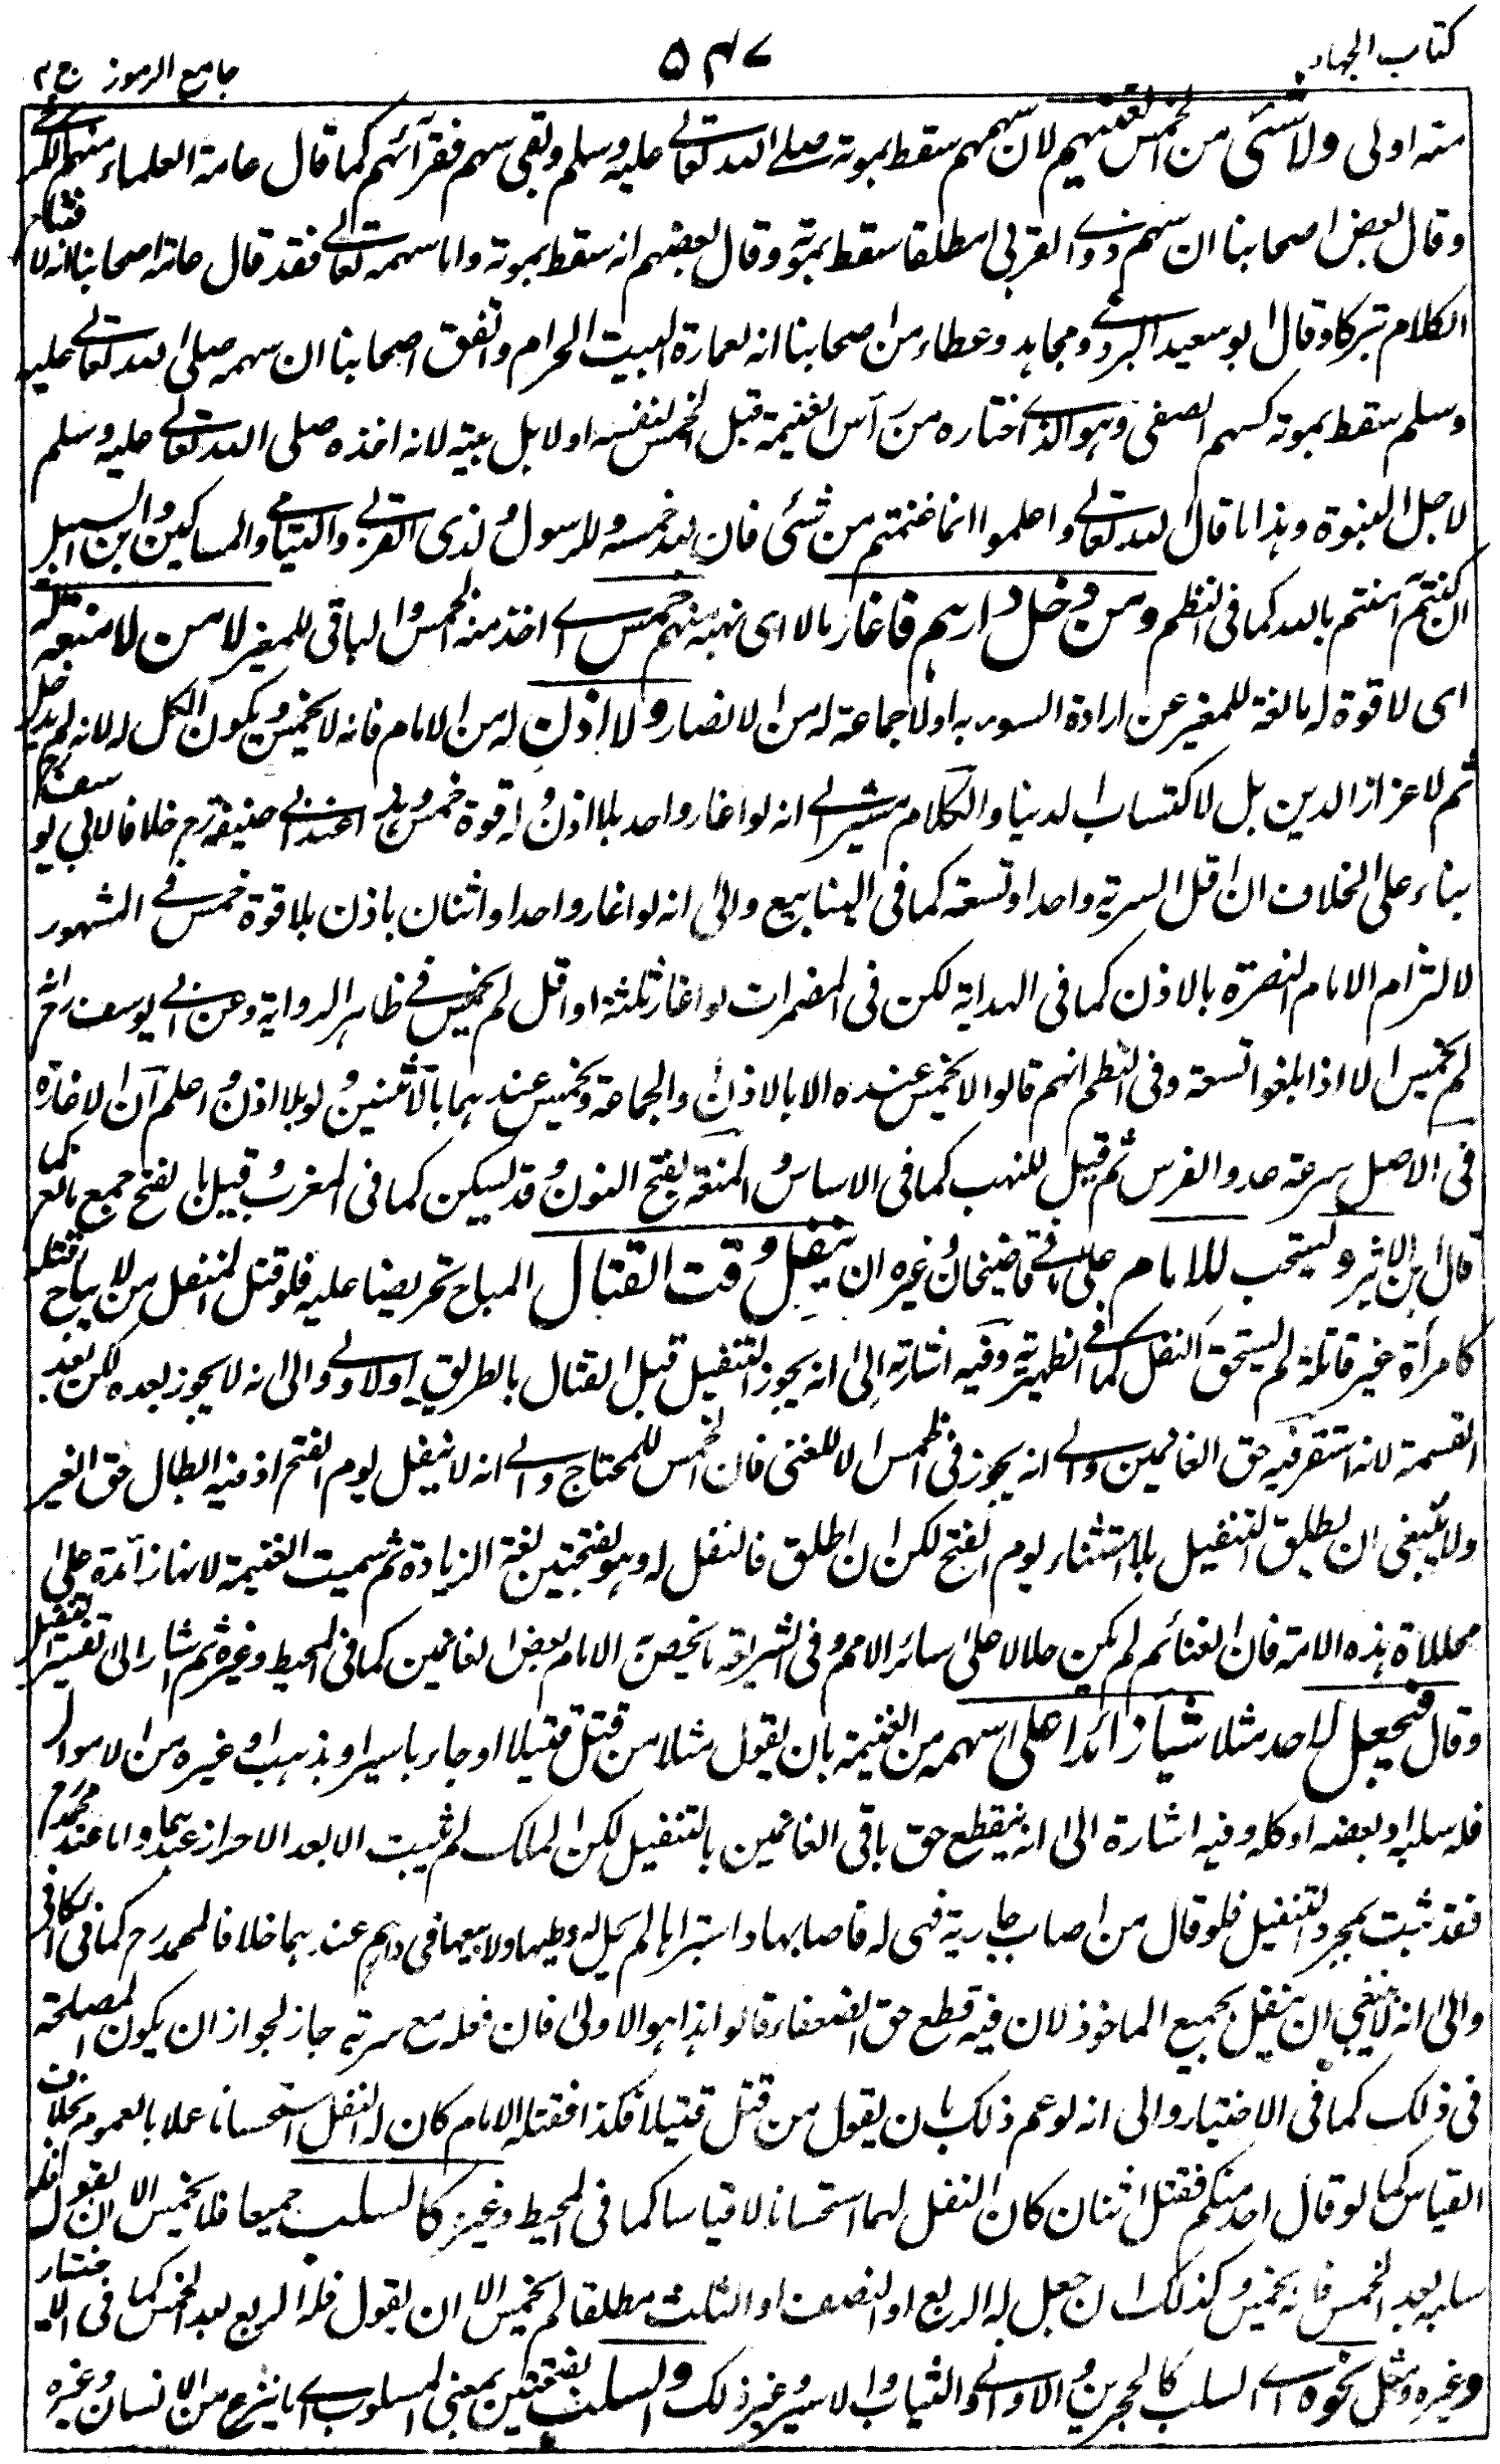 كتاب الجهاد
۵۴۷
جامع الرموز ج ۲
منه اولى ولا شئ من الخمس لغنيهم لان سهمهم سقط بموته صلے اللہ تعالے عليه وسلم وبقى سهم فقرائهم كما قال عامة العلماء منهم الكرخے
وقال بعض اصحابنا ان سهم ذوے القربى مطلقا سقط بموته وقال بعضهم انه سقط بموته واما سهمه تعالے فقد قال عامة اصحابنا انه لافتتاح
الكلام تبركا وقال ابو سعيد البردعے ومجاهد وعطاء من اصحابنا انه لعمارة البيت الحرام واتفق اصحابنا ان سهمه صلى اللہ تعالے عليه
وسلم سقط بموته كسهم الصفى وهو الذے اختاره من راس الغنيمة قبل الخمس لنفسه او لاهل بيته لانه اخذه صلى اللہ تعالے عليه وسلم
لاجل النبوة وهذا ما قال اللہ تعالے واعلموا انما غنمتم من شئ فان للہ خمسه وللرسول ولذى القربے واليتامے والمساكين وابن السبيل
ان كنتم آمنتم باللہ كما فى النظم ومن دخل دارهم فاغار مالا اى نهبه منهم خمس اے اخذ منه الخمس والباقى للمغير لا من لا منعة له
اى لا قوة له مانعة للمغير عن ارادة السوء به اولا جماعة له من الانصار ولا اذن له من الامام فانه لا يخمس ويكون الكل له لانه لم يدخل
ثم لاعزاز الدين بل لاكتساب الدنيا والكلام مشير الے انه لو اغار واحد بلا اذن وله قوة خمس وهذا عند ابے حنيفة رح خلافا لابى يوسف رح
بناء على الخلاف ان اقل السرية واحد او تسعة كما فى الينابيع والى انه لو اغار واحد او اثنان باذن بلا قوة خمس فے المشهور
لالتزام الامام النصرة بالاذن كما فى الهداية لكن فى المضمرات لو اغار ثلثة او اقل لم يخمس فے ظاهر الرواية وعن ابے يوسف رح انه
لم يخمس الا اذا بلغوا تسعة وفى النظم انهم قالوا لا يخمس عنده الا بالاذن والجماعة ويخمس عندهما بالاثنين ولو بلا اذن واعلم ان الاغارة
فى الاصل سرعة عدو الفرس ثم قيل للنهب كما فى الاساس والمنعة بفتح النون وقد يسكن كما فى المغرب وقيل بالفتح جمع مانع كما
قال ابن الاثير ويستحب للامام على ما فے قاضيخان وغيره ان ينفل وقت القتال المباح تحريضا عليه فلو قتل المنفل من لا يباح قتله
كامرأة غير قاتلة لم يستحق النفل كما فے الظهيرية وفيه اشارة الى انه يجوز التنفيل قبل القتال بالطريق الاولے والى انه لا يجوز بعده لكن بعد
القسمة لانه استقر فيه حق الغانمين والے انه يجوز فى الخمس لا للغنى فان الخمس للمحتاج والے انه لا ينفل يوم الفتح اذ فيه ابطال حق الغير
ولا ينبغى ان يطلق التنفيل بلا استثناء يوم الفتح لكن ان اطلق فالنفل له وهو بفتحتين لغة الزيادة ثم سميت الغنيمة لانها زائدة على
محللاة هذه الامة فان الغنائم لم يكن حلالا على سائر الامم وفى الشريعة ما يخصه الامام بعض الغانمين كما فى المحيط وغيره ثم اشار الى تفسير التنفيل
وقال فيجعل لاحد مثلا شيئا زائدا على سهمه من الغنيمة بان يقول مثلا من قتل قتيلا او جاء باسير او بذهب او غيره من الاموال
فله سلبه او بعضه او كله وفيه اشارة الى انه ينقطع حق باقى الغانمين بالتنفيل لكن الملك لم يثبت الا بعد الاحراز عندهما واما عند محمد رح
فقد ثبت بمجرد التنفيل فلو قال من اصاب جارية فهى له فاصابها واستبراها لم يحل له وطيها ولا بيعها فى دارهم عندهما خلافا لمحمد رح كما فى الكافى
والى انه لا ينبغى ان ينفل بجميع الماخوذ لان فيه قطع حق الضعفاء قالوا هذا هو الاولى فان فعله مع سرية جاز لجواز ان يكون المصلحة
فى ذلك كما فى الاختيار والى انه لو عم ذلك بان يقول من قتل قتيلا فكذا فقتله الامام كان له النفل استحسانا عملا بالعموم بخلاف
القياس كما لو قال احد منكم فقتل اثنان كان النفل لهما استحسانا لا قياسا كما فى المحيط وغيره كالسلب جميعا فلا يخمس الا ان يقول فله
سلبه بعد الخمس فانه يخمس وكذلك ان جعل له الربع او النصف او الثلث مطلقا لم يخمس الا ان يقول فله الربع بعد الخمس كما فى الاختيار
وغيره ومثل نحوه اے السلب كالحجرين والاوانے والثياب والاسير وغير ذلك والسلب بفتحتين بمعنى المسلوب اے ما ينزع من الانسان وغيره